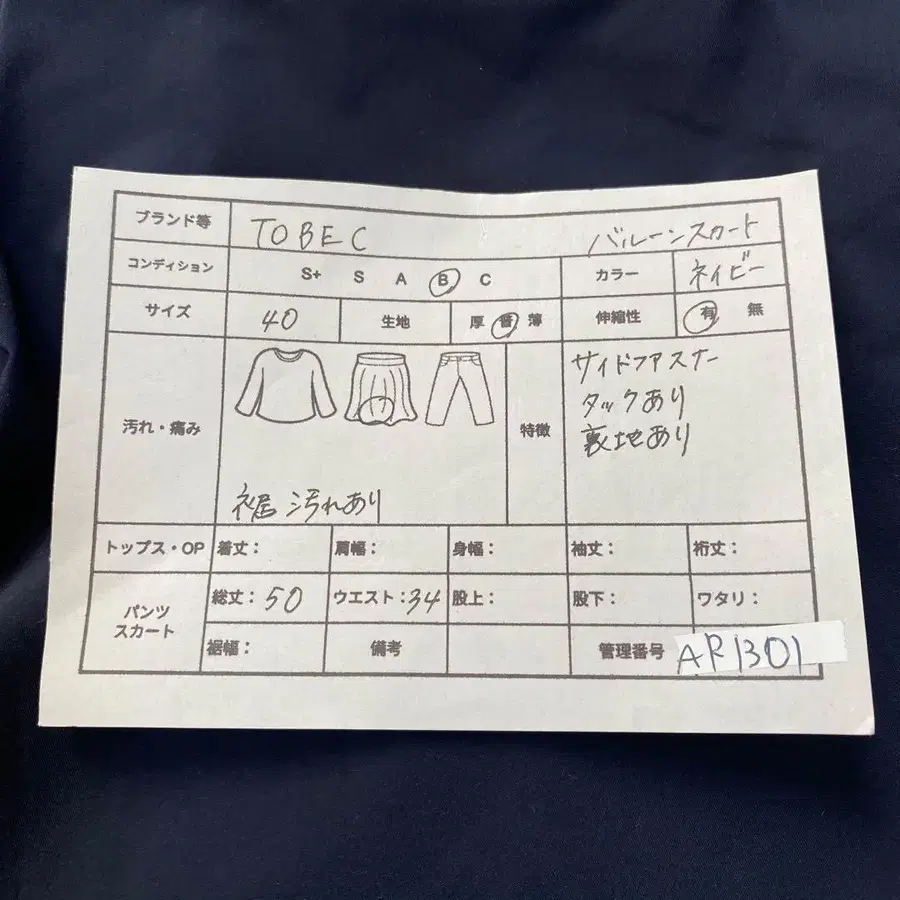 ブランド等 TOBEC バルーンスカート
コンディション S+ S A B C カラー ネイビー
サイズ 40 生地 厚 普 薄 伸縮性 有 無
汚れ・痛み 裾 汚れあり
特徴 サイドファスナー
タックあり
裏地あり
トップス・OP 着丈: 肩幅: 身幅: 袖丈: 裄丈:
パンツ
スカート
総丈:50 ウエスト:34 股上: 股下: ワタリ:
裾幅: 備考 管理番号 AR1301